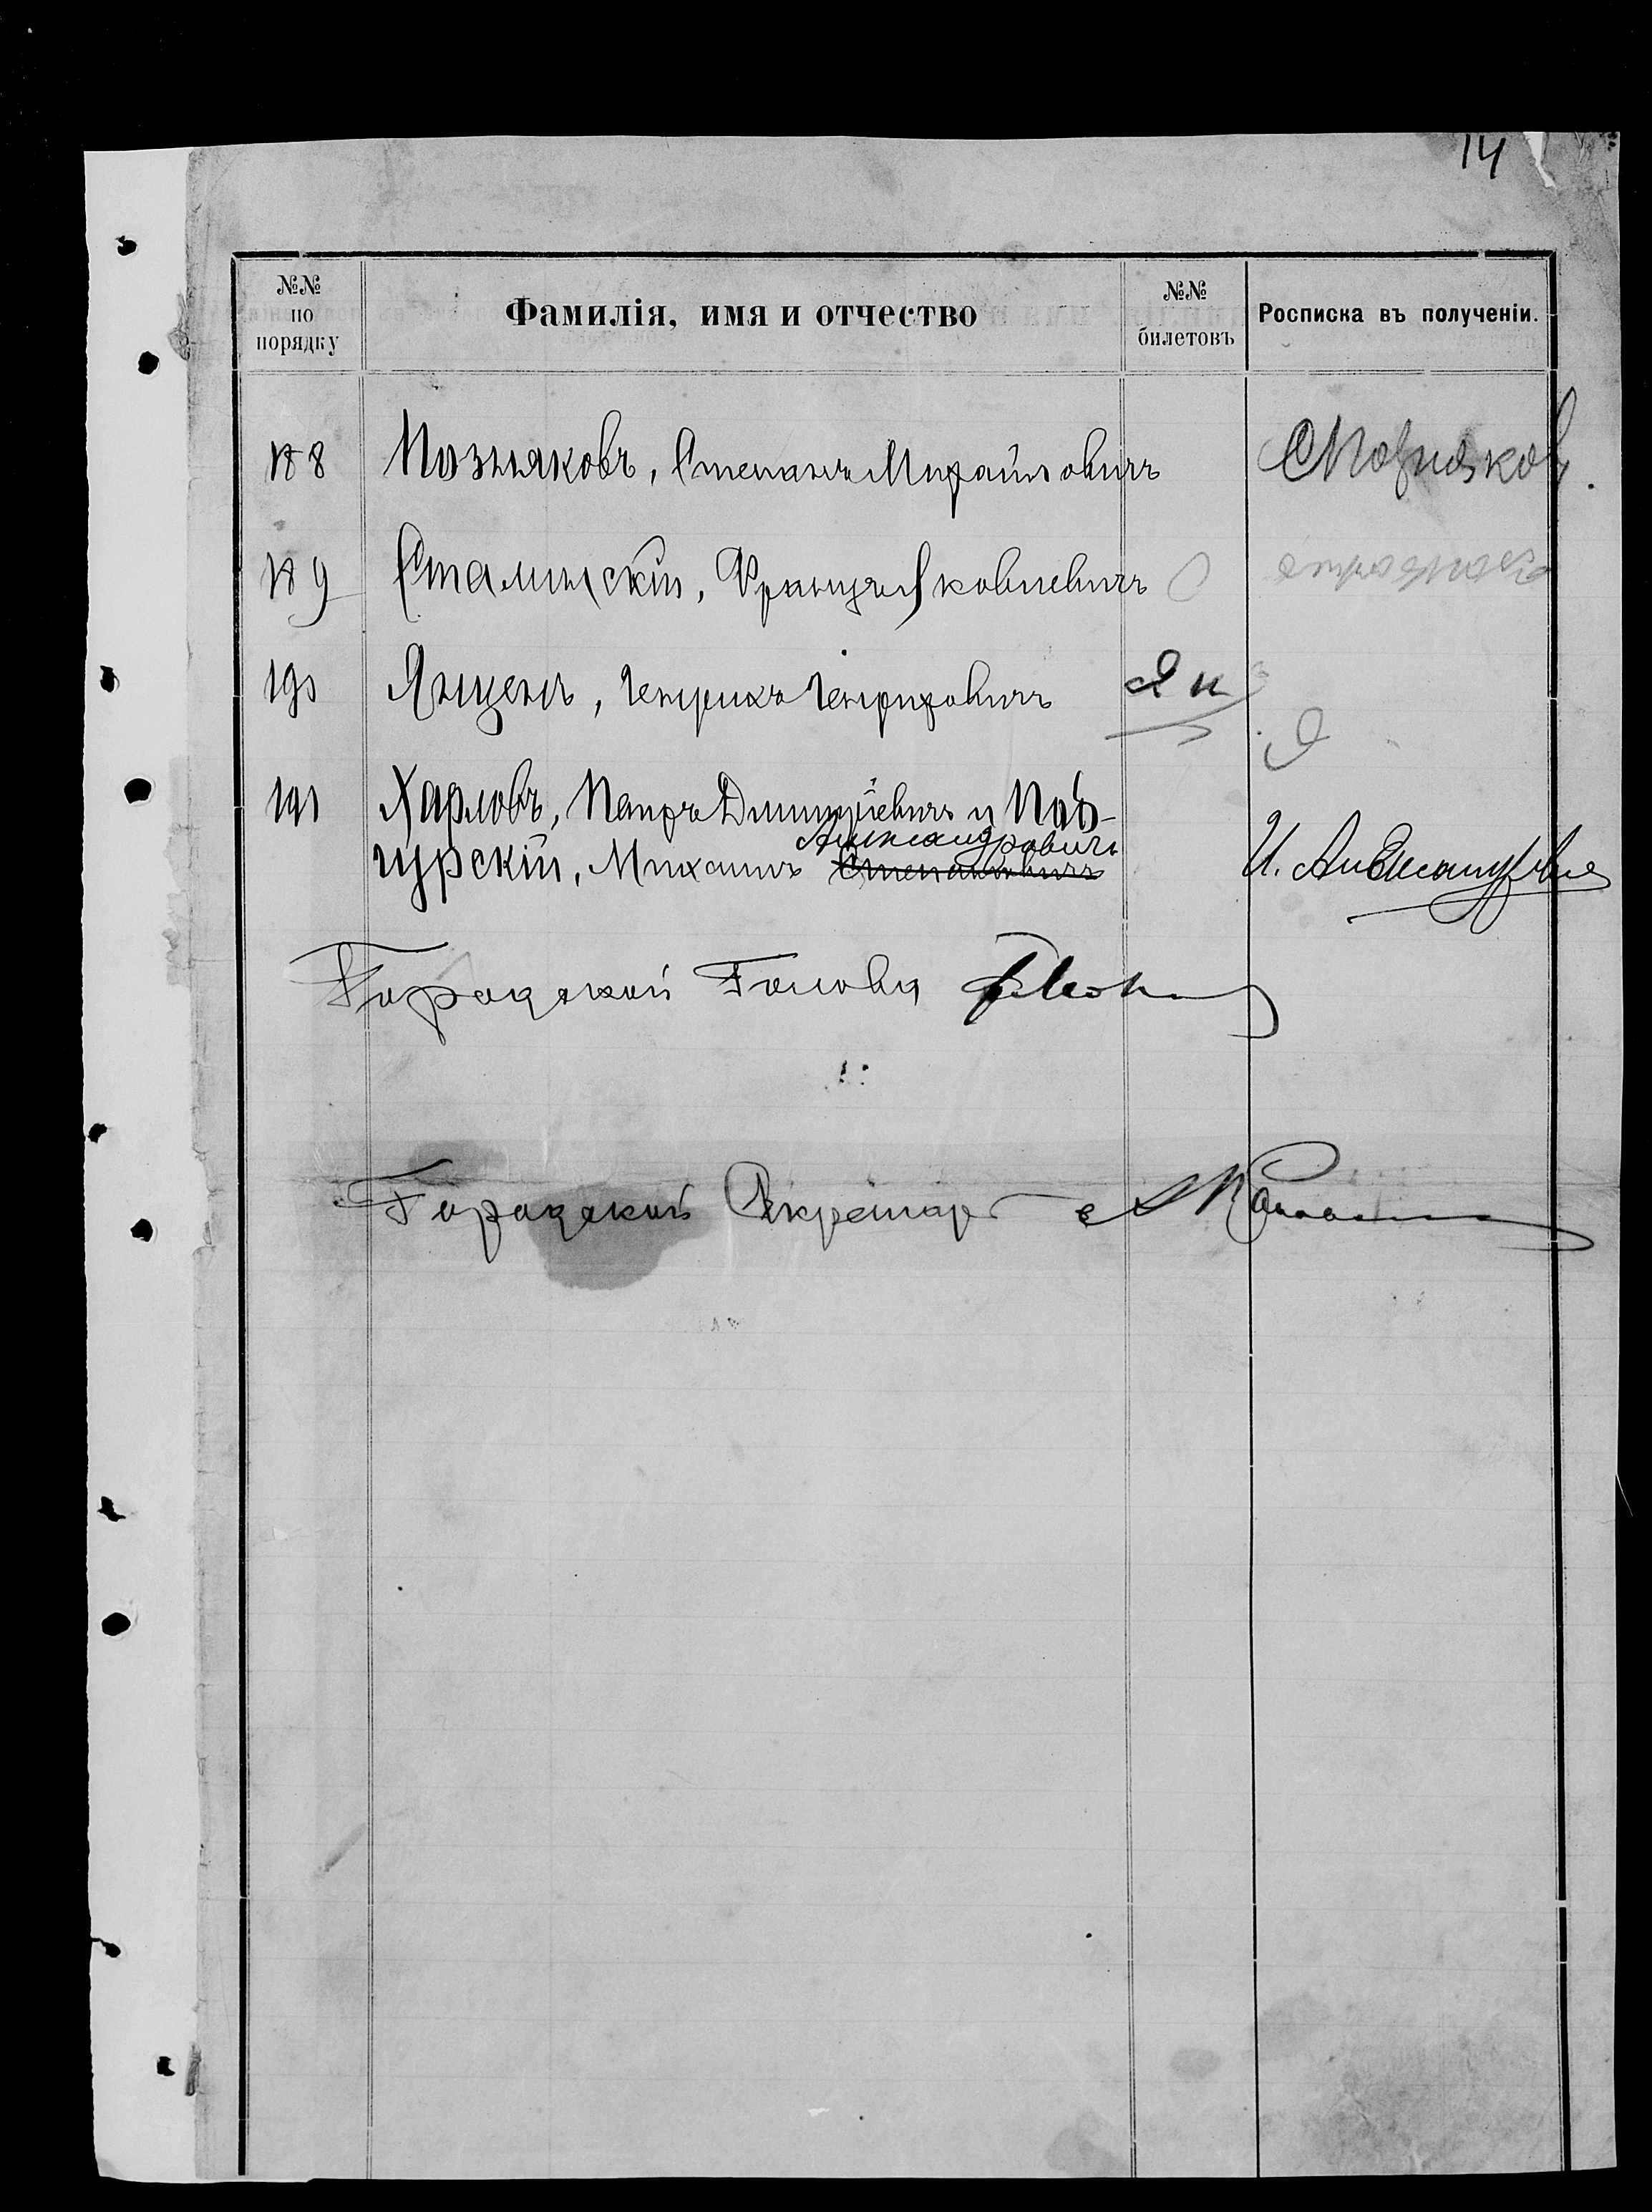 14
№№ по порядку Фамилія, имя и отчество №№ билетовъ Росписка въ полученіи.
188 Позняковъ, Степанъ Михайловичъ СПозняков.
189 Сталинскій, Францъ Яковлевичъ
190 Янценъ, Генрихъ Генриховичъ Ян
Я
191 Харловъ, Петръ Дмитріевичъ и Под-
Александровичъ
гурскій, Михаилъ Степановичъ И. Александровъ
Городской Голова
Городской Секретарь